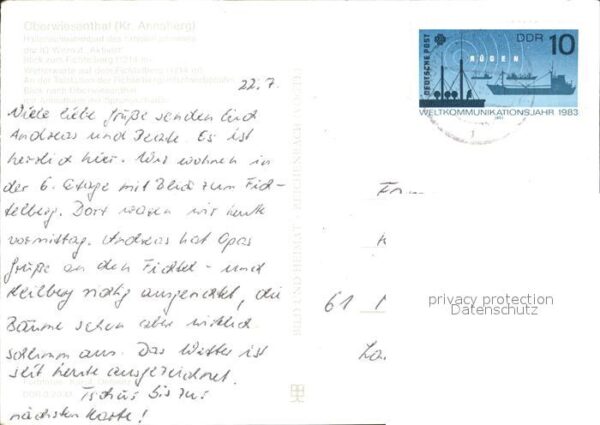 Oberwiesenthal (Kr. Annaberg)
DEUTSCHE POST
DDR 10
RÜGEN
WELTKOMMUNIKATIONSJAHR 1983
22.7.
Viele liebe Grüße senden Euch
Andreas und Beate. Es ist
herrlich hier. Wir wohnen in
der 6. Etage mit Blick zum Fich-
telberg. Dort waren wir heute
vormittag. Andreas hat Opas
Grüße an den Fichtel- und
Keilberg richtig ausgerichtet, die
Bäume sehen aber wirklich
schlimm aus. Das Wetter ist
seit heute ausgezeichnet.
Tschüs bis zur
nächsten Karte!
BILD UND HEIMAT REICHENBACH
61
privacy protection
Datenschutz